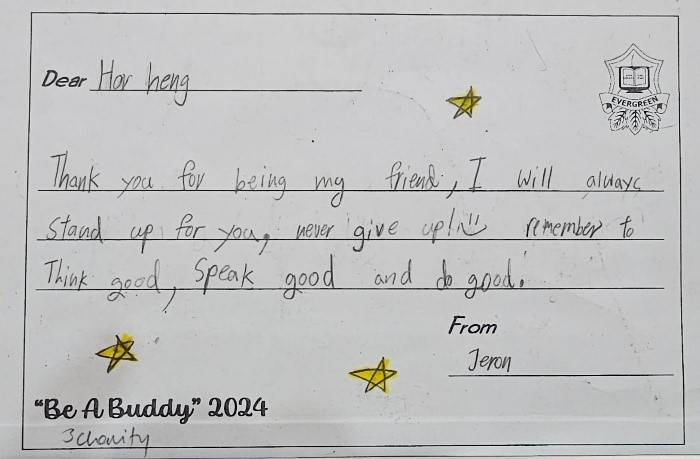 Dear Hov heng
EVERGREEN
Thank you for being my friend, I will always
stand up for you, never give up! remember to
Think good, Speak good and do good.
From
Jeron
"Be A Buddy" 2024
3charity